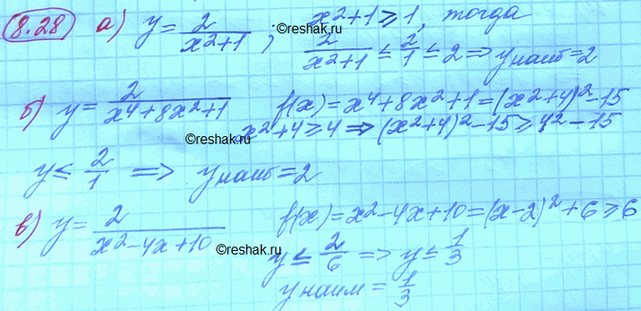 8.28 а) y = 2/(x²+1) ; x²+1 ⩾ 1, тогда
2/(x²+1) ≤ 2/1 ≤ 2 ⇒ yнаиб = 2
©reshak.ru
б) y = 2/(x⁴+8x²+1) f(x) = x⁴+8x²+1 = (x²+4)²-15
©reshak.ru
x²+4 ⩾ 4 ⇒ (x²+4)²-15 ⩾ 4²-15
y ≤ 2/1 ⇒ yнаиб = 2
в) y = 2/(x²-4x+10) f(x) = x²-4x+10 = (x-2)²+6 ⩾ 6
©reshak.ru
y ≤ 2/6 ⇒ y ≤ 1/3
yнаим = 1/3